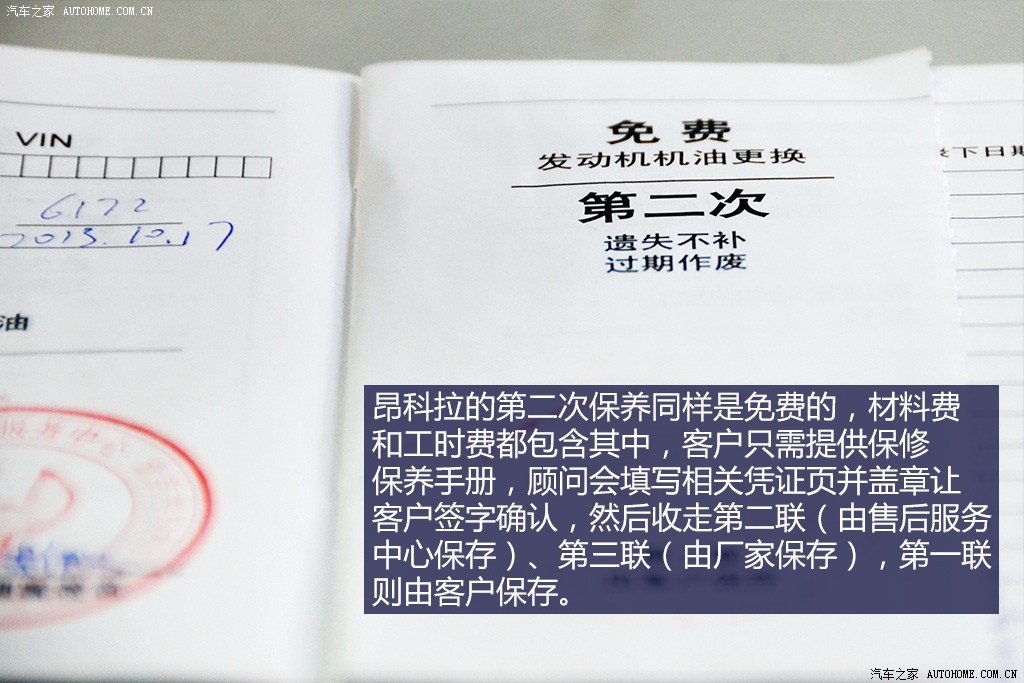 汽车之家 AUTOHOME.COM.CN
VIN
6172
2013.10.17
油
免费
发动机机油更换
第二次
遗失不补
过期作废
下日期
昂科拉的第二次保养同样是免费的，材料费
和工时费都包含其中，客户只需提供保修
保养手册，顾问会填写相关凭证页并盖章让
客户签字确认，然后收走第二联（由售后服务
中心保存）、第三联（由厂家保存），第一联
则由客户保存。
汽车之家 AUTOHOME.COM.CN